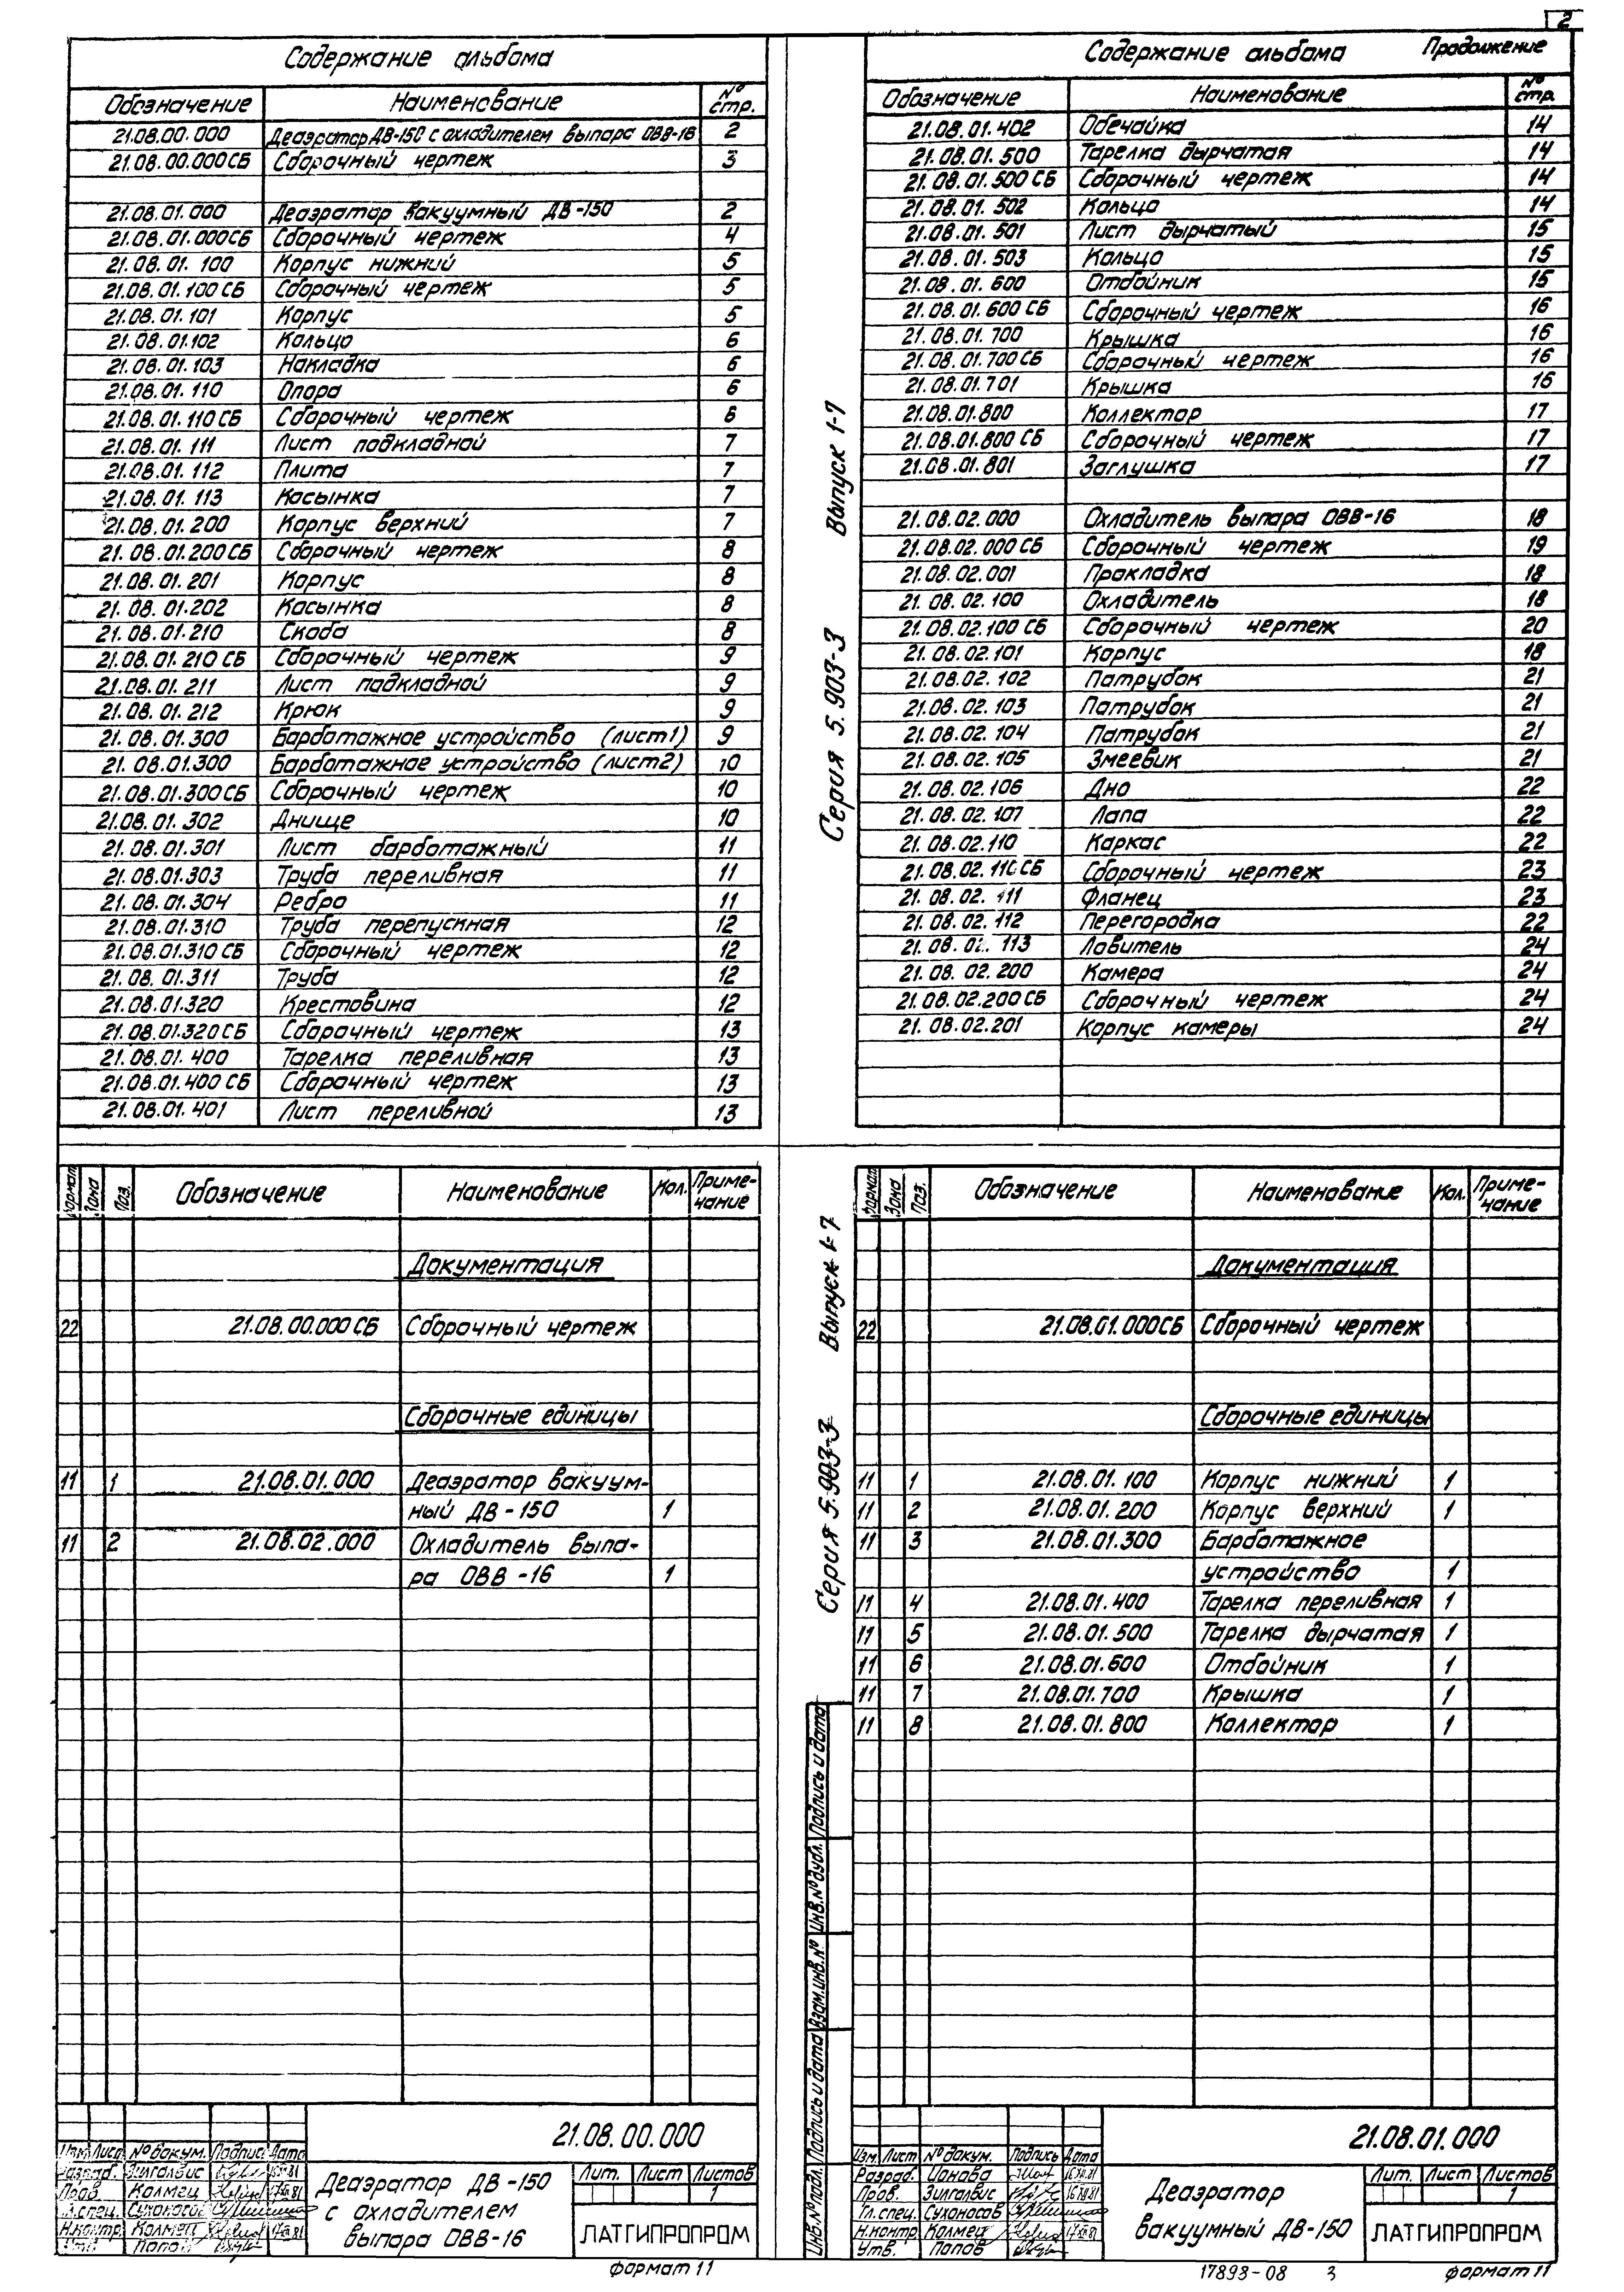 2
Содержание альбома
Обозначение Наименование № стр.
21.08.00.000 Деаэратор ДВ-150 с охладителем выпара ОВВ-16 2
21.08.00.000СБ Сборочный чертеж 3
21.08.01.000 Деаэратор вакуумный ДВ-150 2
21.08.01.000СБ Сборочный чертеж 4
21.08.01.100 Корпус нижний 5
21.08.01.100СБ Сборочный чертеж 5
21.08.01.101 Корпус 5
21.08.01.102 Кольцо 6
21.08.01.103 Накладка 6
21.08.01.110 Опора 6
21.08.01.110СБ Сборочный чертеж 6
21.08.01.111 Лист подкладной 7
21.08.01.112 Плита 7
21.08.01.113 Косынка 7
21.08.01.200 Корпус верхний 7
21.08.01.200СБ Сборочный чертеж 8
21.08.01.201 Корпус 8
21.08.01.202 Косынка 8
21.08.01.210 Скоба 8
21.08.01.210СБ Сборочный чертеж 9
21.08.01.211 Лист подкладной 9
21.08.01.212 Крюк 9
21.08.01.300 Барботажное устройство (лист1) 9
21.08.01.300 Барботажное устройство (лист2) 10
21.08.01.300СБ Сборочный чертеж 10
21.08.01.302 Днище 10
21.08.01.301 Лист барботажный 11
21.08.01.303 Труба переливная 11
21.08.01.304 Ребро 11
21.08.01.310 Труба перепускная 12
21.08.01.310СБ Сборочный чертеж 12
21.08.01.311 Труба 12
21.08.01.320 Крестовина 12
21.08.01.320СБ Сборочный чертеж 13
21.08.01.400 Тарелка переливная 13
21.08.01.400СБ Сборочный чертеж 13
21.08.01.401 Лист переливной 13
Серия 5.903-3 Выпуск 1-7
Содержание альбома Продолжение
Обозначение Наименование № стр.
21.08.01.402 Обечайка 14
21.08.01.500 Тарелка дырчатая 14
21.08.01.500СБ Сборочный чертеж 14
21.08.01.502 Кольцо 14
21.08.01.501 Лист дырчатый 15
21.08.01.503 Кольцо 15
21.08.01.600 Отбойник 15
21.08.01.600СБ Сборочный чертеж 16
21.08.01.700 Крышка 16
21.08.01.700СБ Сборочный чертеж 16
21.08.01.701 Крышка 16
21.08.01.800 Коллектор 17
21.08.01.800СБ Сборочный чертеж 17
21.08.01.801 Заглушка 17
21.08.02.000 Охладитель выпара ОВВ-16 18
21.08.02.000СБ Сборочный чертеж 19
21.08.02.001 Прокладка 18
21.08.02.100 Охладитель 18
21.08.02.100СБ Сборочный чертеж 20
21.08.02.101 Корпус 18
21.08.02.102 Патрубок 21
21.08.02.103 Патрубок 21
21.08.02.104 Патрубок 21
21.08.02.105 Змеевик 21
21.08.02.106 Дно 22
21.08.02.107 Лапа 22
21.08.02.110 Каркас 22
21.08.02.110СБ Сборочный чертеж 23
21.08.02.111 Фланец 23
21.08.02.112 Перегородка 22
21.08.02.113 Ловитель 24
21.08.02.200 Камера 24
21.08.02.200СБ Сборочный чертеж 24
21.08.02.201 Корпус камеры 24
Формат Зона Поз. Обозначение Наименование Кол. Примечание
Документация
22 21.08.00.000СБ Сборочный чертеж
Сборочные единицы
11 1 21.08.01.000 Деаэратор вакуум-
ный ДВ-150 1
11 2 21.08.02.000 Охладитель выпа-
ра ОВВ-16 1
21.08.00.000
Изм. Лист № докум. Подпись Дата
Разраб. Зилгалвис
Пров. Колмец
Гл.спец. Сухоносов
Н.контр. Колмец
Утв. Попов
Деаэратор ДВ-150
с охладителем
выпара ОВВ-16
Лит. Лист Листов
1
ЛАТГИПРОПРОМ
формат 11
Серия 5.903-3 Выпуск 1-7
Инв.№ подл. Подпись и дата Взам.инв.№ Инв.№ дубл. Подпись и дата
Формат Зона Поз. Обозначение Наименование Кол. Примечание
Документация
22 21.08.01.000СБ Сборочный чертеж
Сборочные единицы
11 1 21.08.01.100 Корпус нижний 1
11 2 21.08.01.200 Корпус верхний 1
11 3 21.08.01.300 Барботажное
устройство 1
11 4 21.08.01.400 Тарелка переливная 1
11 5 21.08.01.500 Тарелка дырчатая 1
11 6 21.08.01.600 Отбойник 1
11 7 21.08.01.700 Крышка 1
11 8 21.08.01.800 Коллектор 1
21.08.01.000
Изм. Лист № докум. Подпись Дата
Разраб.
Пров. Зилгалвис
Гл.спец. Сухоносов
Н.контр. Колмец
Утв. Попов
Деаэратор
вакуумный ДВ-150
Лит. Лист Листов
1
ЛАТГИПРОПРОМ
17898-08 3 формат 11